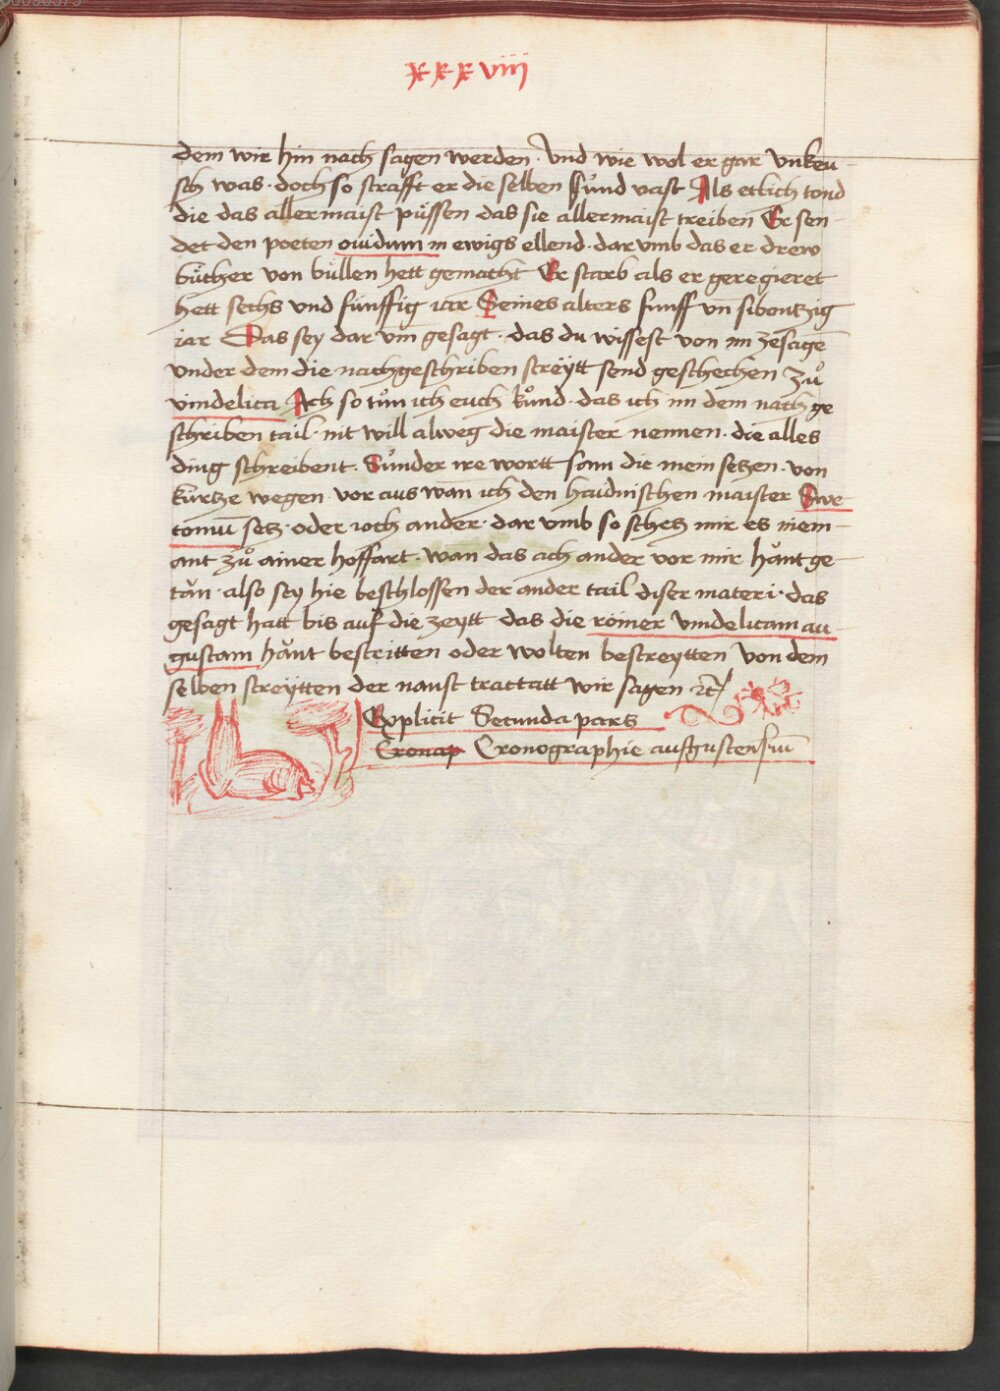 xxxviii
dem wir hin nach sagen werden · Vnd wie wol er gar vnkeu-
sch was · doch so strafft er die selben sünd vast Als etlich tond
die das allermaist püssen das sie allermaist treiben Er sen-
det den poeten ouidum in ewigs ellend · dar vmb das er drew
bücher von bůllen hett gemacht Er starb als er geregieret
hett sechs vnd fünffig iar Seines alters funff vn̄ sibentzig
iar Das sey dar vm gesagt · das du wissest von im zesagē
vnder dem die nachgeschriben streÿtt send geschechen zů
vindelica Ach so tůn ich euch kůnd · das ich im dem nach ge
schriben tail · nit will alweg die maister nennen · die alles
ding schreibent · Sůnder ire wortt sam die mein setzen · von
kürtze wegen · vor aus wan ich den haidnischen maister Swe
toniū setz · oder ioch ander · dar vmb so schetz mir es niem-
ant zů ainer hoffart · wan das ach ander vor mir hănt ge-
tăn · also sey hie beschlossen der ander tail diser materi · das
gesagt hatt bis auf die zeytt das die römer vindelicam au-
gustam hănt bestritten oder wolten bestreytten von dem
selben streÿtten der naust tractatt wir sagen ꝛc̄
Explicit Secunda pars
Cronap Cronographie ausgustensiū